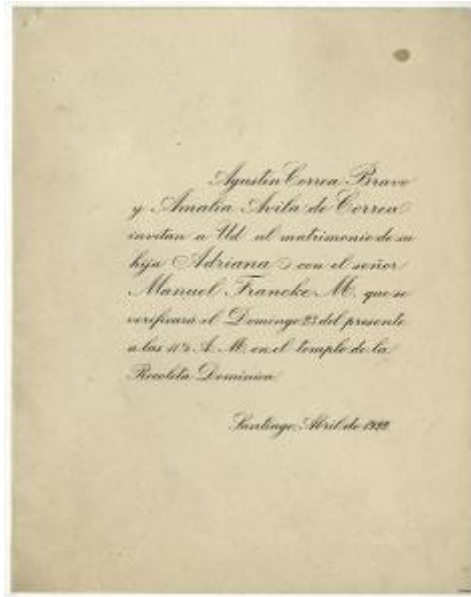 Agustin Correa Bravo
y Amalia Avila de Correa
invitan a Ud. al matrimonio de su
hija Adriana con el señor
Manuel Francke M. que se
verificará el Domingo 23 del presente
a las A. M. en el templo de la
Recoleta Dominica
Santiago, Abril de